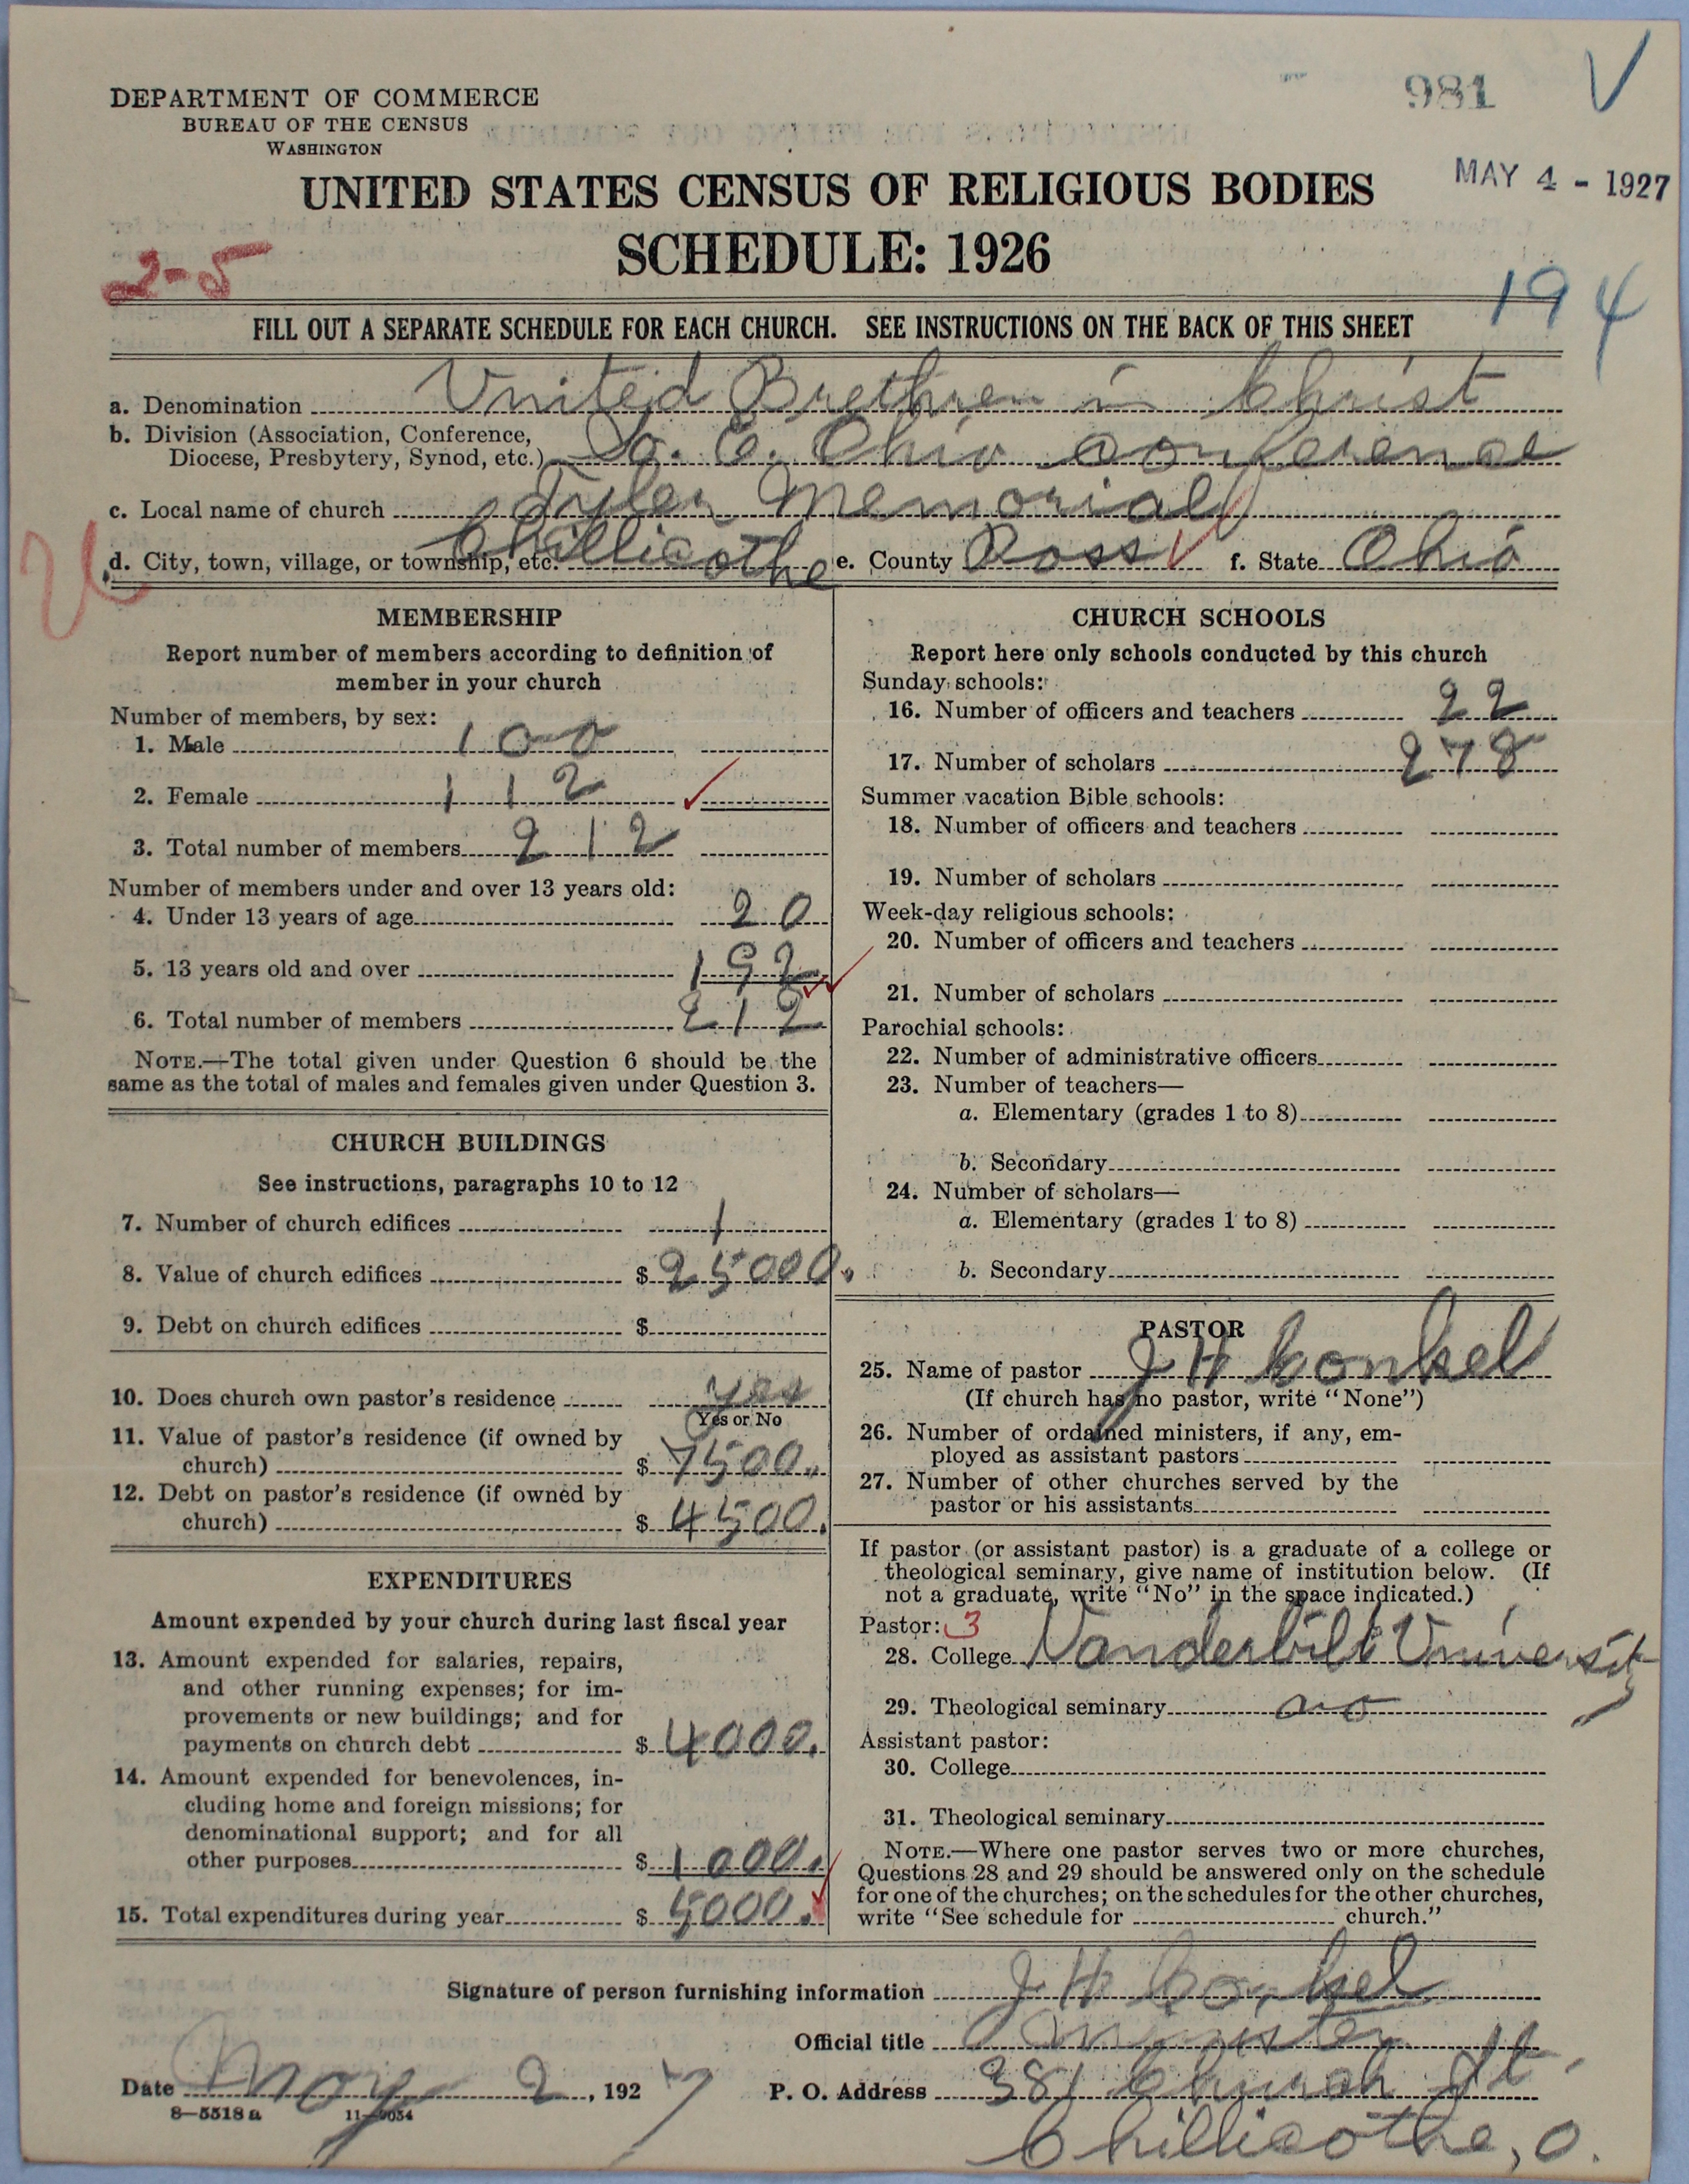 981
V
DEPARTMENT OF COMMERCE
BUREAU OF THE CENSUS
WASHINGTON
MAY 4 - 1927
UNITED STATES CENSUS OF RELIGIOUS BODIES
SCHEDULE: 1926
2-5
194
FILL OUT A SEPARATE SCHEDULE FOR EACH CHURCH. SEE INSTRUCTIONS ON THE BACK OF THIS SHEET
a. Denomination United Brethren in Christ
b. Division (Association, Conference, Diocese, Presbytery, Synod, etc.) So. E. Ohio Conference
c. Local name of church Tyler Memorial
d. City, town, village, or township, etc. Chillicothe e. County Ross f. State Ohio
MEMBERSHIP
Report number of members according to definition of
member in your church
Number of members, by sex:
1. Male 100
2. Female 112
3. Total number of members 212
Number of members under and over 13 years old:
4. Under 13 years of age 20
5. 13 years old and over 192
6. Total number of members 212
NOTE.—The total given under Question 6 should be the
same as the total of males and females given under Question 3.
CHURCH BUILDINGS
See instructions, paragraphs 10 to 12
7. Number of church edifices 1
8. Value of church edifices $ 25000.
9. Debt on church edifices $
10. Does church own pastor's residence yes
Yes or No
11. Value of pastor's residence (if owned by
church) $ 7500.
12. Debt on pastor's residence (if owned by
church) $ 4500.
EXPENDITURES
Amount expended by your church during last fiscal year
13. Amount expended for salaries, repairs,
and other running expenses; for im-
provements or new buildings; and for
payments on church debt $ 4000.
14. Amount expended for benevolences, in-
cluding home and foreign missions; for
denominational support; and for all
other purposes $ 1000.
15. Total expenditures during year $ 5000.
CHURCH SCHOOLS
Report here only schools conducted by this church
Sunday schools:
16. Number of officers and teachers 22
17. Number of scholars 278
Summer vacation Bible schools:
18. Number of officers and teachers
19. Number of scholars
Week-day religious schools:
20. Number of officers and teachers
21. Number of scholars
Parochial schools:
22. Number of administrative officers
23. Number of teachers—
a. Elementary (grades 1 to 8)
b. Secondary
24. Number of scholars—
a. Elementary (grades 1 to 8)
b. Secondary
PASTOR
25. Name of pastor J H Conkel
(If church has no pastor, write "None")
26. Number of ordained ministers, if any, em-
ployed as assistant pastors
27. Number of other churches served by the
pastor or his assistants
If pastor (or assistant pastor) is a graduate of a college or
theological seminary, give name of institution below. (If
not a graduate, write "No" in the space indicated.)
Pastor: 3
28. College Vanderbilt University
29. Theological seminary no
Assistant pastor:
30. College
31. Theological seminary
NOTE.—Where one pastor serves two or more churches,
Questions 28 and 29 should be answered only on the schedule
for one of the churches; on the schedules for the other churches,
write "See schedule for church."
Signature of person furnishing information J H Conkel
Official title Minister
Date May 2, 1927 P. O. Address 381 Church St.
8-5518a 11-9054
Chillicothe, O.